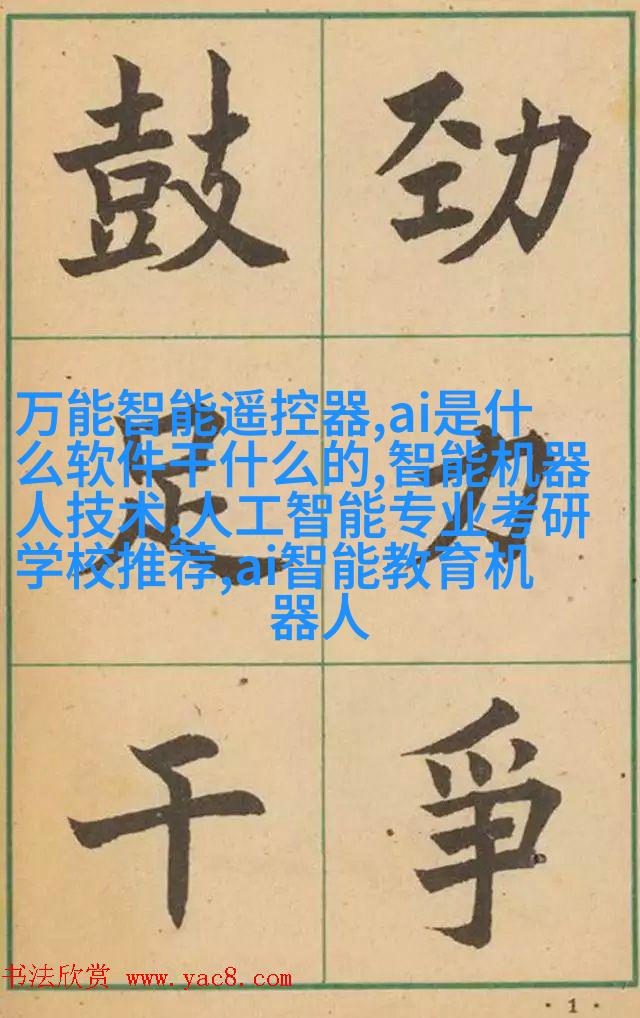 鼓足干
劲力爭
万能智能遥控器,ai是什
么软件干什么的,智能机器
人技术,人工智能专业考研
学校推荐,ai智能教育机
器人
书法欣赏 www.yac8.com
·1·